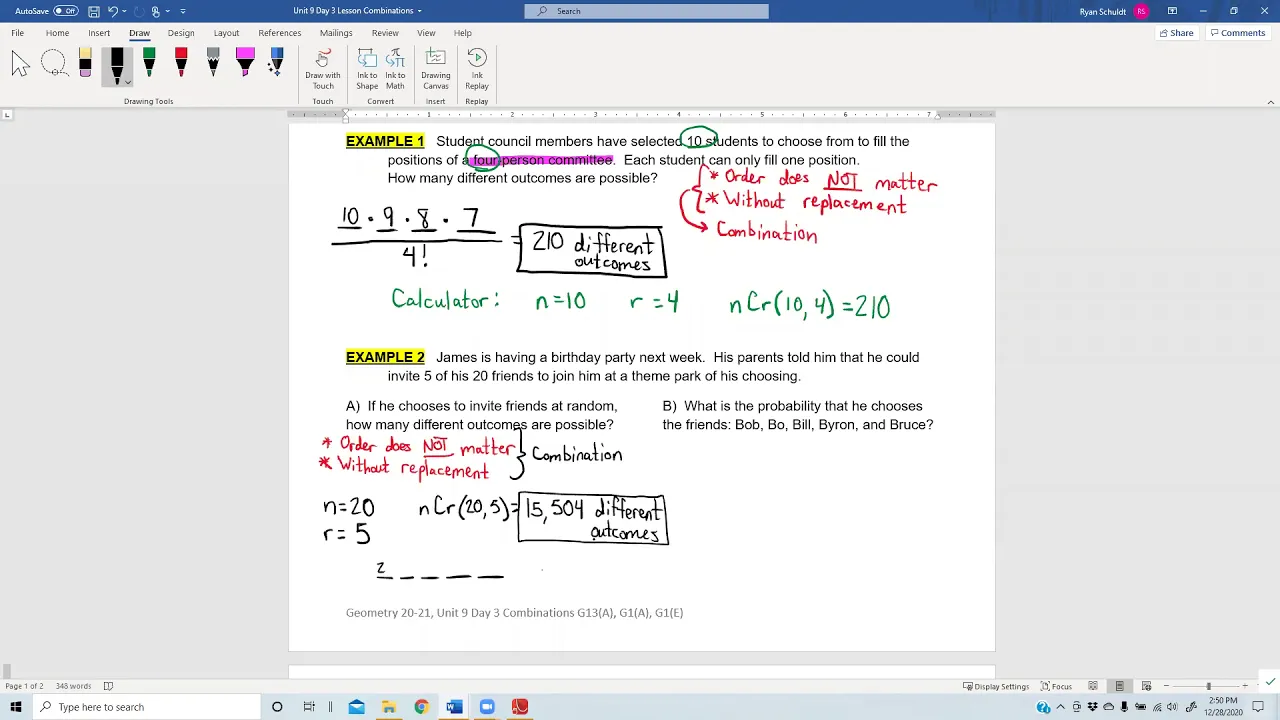 AutoSave Off
Unit 9 Day 3 Lesson Combinations
Search
Ryan Schuldt RS
File Home Insert Draw Design Layout References Mailings Review View Help
Share Comments
Draw with Touch
Ink to Shape
Ink to Math
Drawing Canvas
Ink Replay
Drawing Tools Touch Convert Insert Replay
1 2 3 4 5 6 7
EXAMPLE 1 Student council members have selected 10 students to choose from to fill the
positions of a four-person committee. Each student can only fill one position.
How many different outcomes are possible?
* Order does NOT matter
* Without replacement
Combination
10 · 9 · 8 · 7
4!
= 210 different
outcomes
Calculator: n=10 r=4 nCr(10,4)=210
EXAMPLE 2 James is having a birthday party next week. His parents told him that he could
invite 5 of his 20 friends to join him at a theme park of his choosing.
A) If he chooses to invite friends at random,
how many different outcomes are possible?
B) What is the probability that he chooses
the friends: Bob, Bo, Bill, Byron, and Bruce?
* Order does NOT matter
* Without replacement
Combination
n=20 nCr(20,5)= 15,504 different
outcomes
r= 5
2
Geometry 20-21, Unit 9 Day 3 Combinations G13(A), G1(A), G1(E)
Page 1 of 2 348 words
Display Settings Focus
Type here to search
1:00 PM
12/28/2020